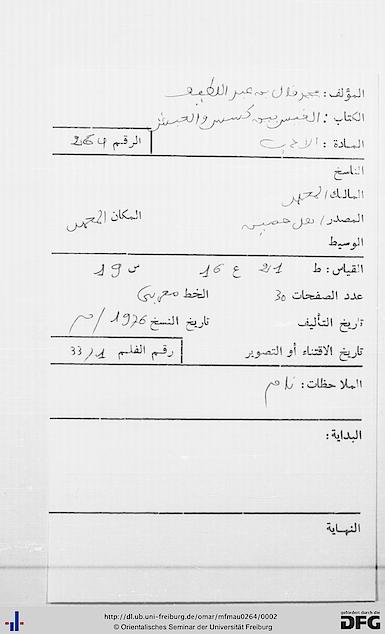 المؤلف: محمد فال بن عبد اللطيف
الكتاب:
المادة: الأدب الرقم 264
الناسخ
المالك
المصدر المكان
الوسيط
القياس: ط 21 ع 16 س 19
عدد الصفحات 30 الخط مغربي
تاريخ التأليف تاريخ النسخ 1976 / م
تاريخ الاقتناء أو التصوير رقم الفلم 33/1
الملاحظات: تام
البداية:
النهاية
http://dl.ub.uni-freiburg.de/omar/mfmau0264/0002
© Orientalisches Seminar der Universität Freiburg
gefördert durch die
DFG